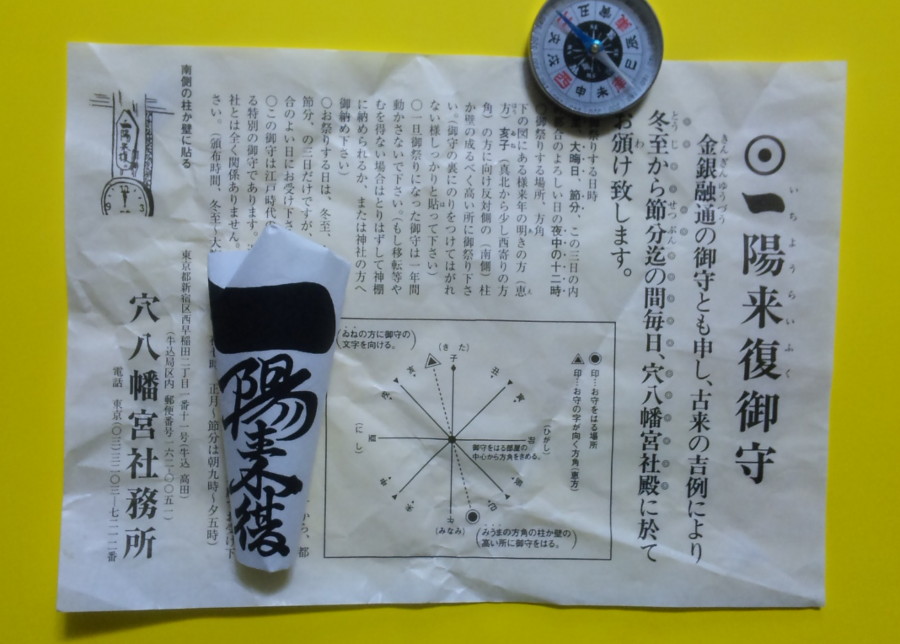 一陽来復御守
いちようらいふく
金銀融通の御守とも申し、古来の吉例により
きんぎんゆうづう
冬至から節分迄の間毎日、穴八幡宮社殿に於て
とうじ せつぶん
お頒け致します。
わ
大晦日 節分、この三日の内
合のよろしい日の夜中の十二時
御祭りする場所、方角
下の図にある様来年の明きの方(恵
方)亥子(真北から少し西寄りの方
角)の方に向け反対側の(南側)柱
か壁の成るべく高い所に御祭り下さ
い。(御守の裏にのりをつけてはがれ
ない様しっかりと貼って下さい)
〇一旦御祭りになった御守は一年間
動かさないで下さい。(もし移転等や
むを得ない場合はとりはずして神棚
に納められるか、または神社の方へ
御納め下さい)
〇お祭りする日は、冬至、
節分、の三日だけですが、
合のよい日にお受け下さ
〇この御守は江戸時代
る特別の御守であります。
社とは全く関係ありません。
さい。(頒布時間、冬至~大
正月~節分は朝九時~夕五時)
から、都
◉印…お守をはる場所
印…お守の字が向く方角(恵方)
ゐねの方に御守の
文字を向ける。
(きた)
子
丑
寅
(ひがし)
卯
(みなみ)
午
(にし)
亥
御守をはる部屋の
中心から方角をきめる。
みうまの方角の柱か壁の
高い所に御守をはる。
南側の柱か壁に貼る
東京都新宿区西早稲田二丁目一番十一号(牛込 高田)
(牛込局区内 郵便番号一六二-〇〇五一)
穴八幡宮社務所
電話 東京(〇三)三二〇三-七二一二番
一陽来復
丑
寅
辰
巳
未
申
酉
戌
亥